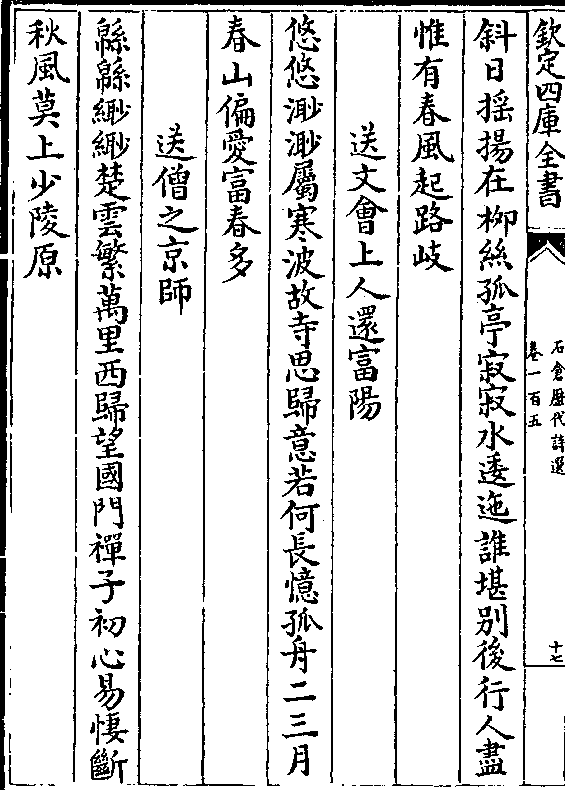 欽定四庫全書
石倉歷代詩選
卷一百五
十七
斜日揺揚在柳絲孤亭寂寂水逶迤誰堪別後行人盡
惟有春風起路歧
送文會上人還富陽
悠悠渺渺屬寒波故寺思歸意若何長憶孤舟二三月
春山偏愛富春多
送僧之京師
緜緜緲緲楚雲繁萬里西歸望國門禪子初心易悽斷
秋風莫上少陵原